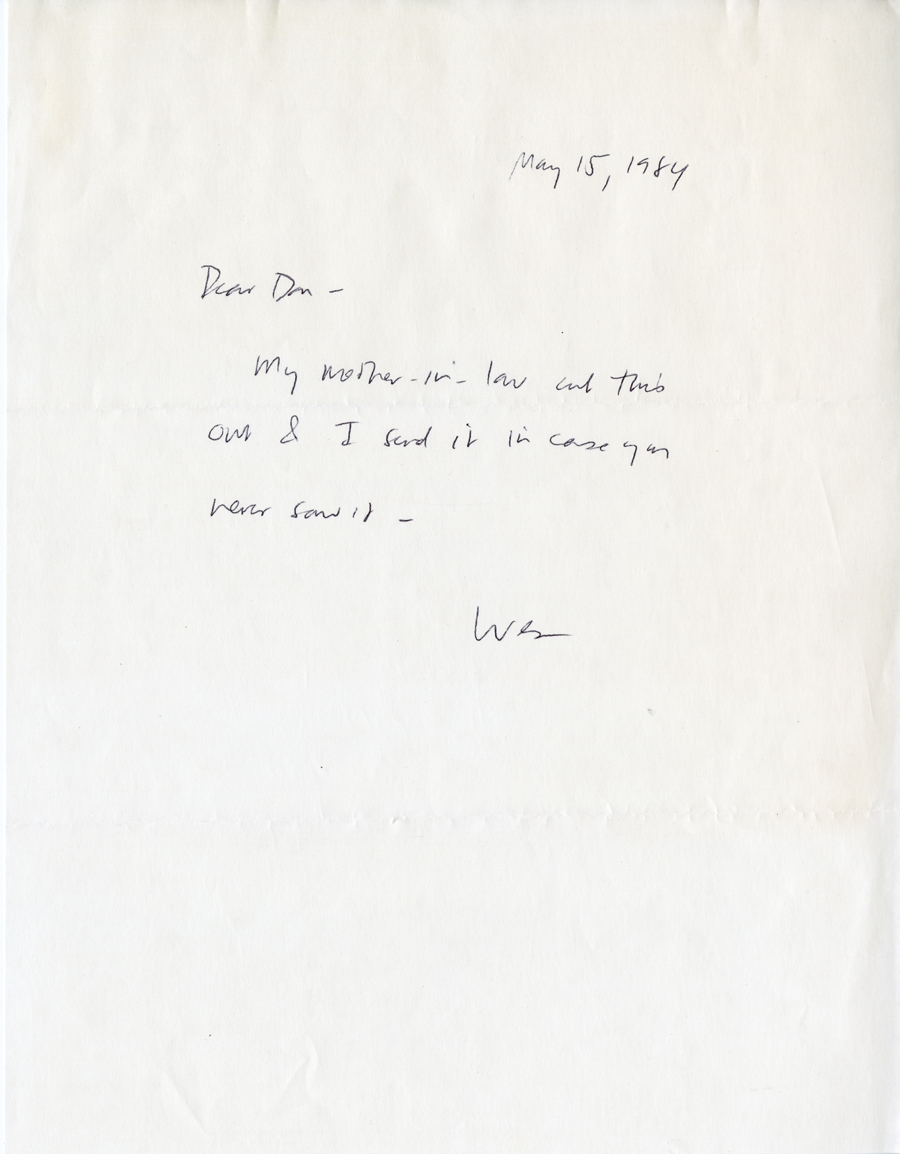 May 15, 1984
Dear Dan –
My mother-in-law cut this
out & I send it in case you
never saw it –
Wes